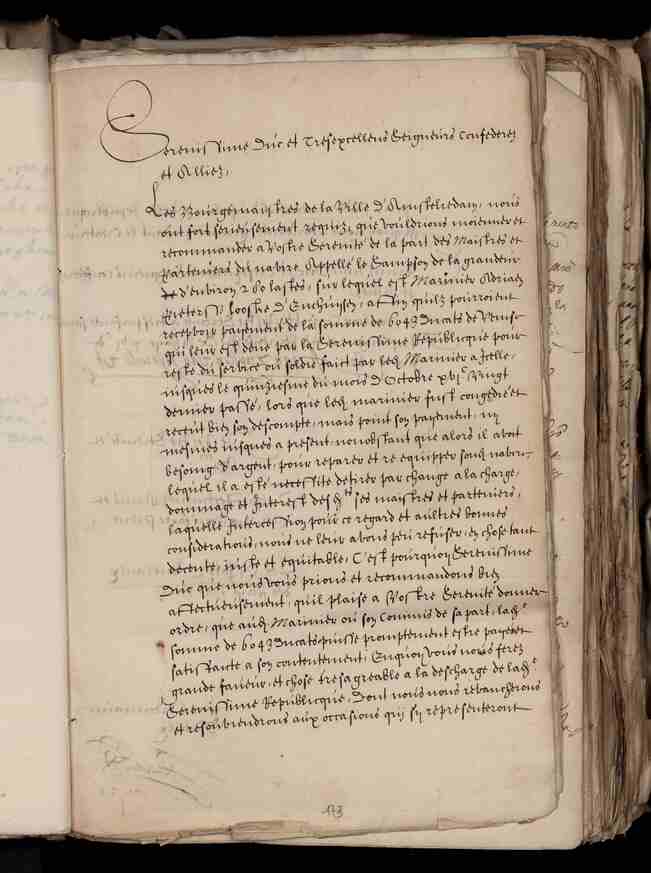 Serenissime Duc et Tresexcellens Seigneurs Confederez
et Alliez,
Les Bourgemaistres de la Ville d'Amstelredam, nous
ont fort serieusement requiz, que vouldrions moienner et
recommander a Vostre Serenité de la part des Maistres et
parteniers du navire Appellé le Sampson de la grandeur
d'environ 280 lastes, sur lequel est Marinier Adriaen
Pieterss: d'Enchuysen, affin quilz pourroient
recepvoir payement de la somme de 6043 Ducats de Venise
qui leur est deue par la Serenissime Republicque pour
reste du service ou soldie faict par led. Marinier a Icelle,
iusques le quinziesme du mois d'Octobre xvjC vingt
dernier passé, lors que led. marinier fust congedié et
receut bien son descompte, mais point son payement, ny
mesmes iusques a present, nonobstant que alors il avoit
besoing d'argent, pour reparer et re equipper sond. navire,
lequel il a esté necessité de tirer par change a la charge,
dommage et Interest desd.ts ses maistres et parteniers,
laquelle Intercession pour ce regard et aultres bonnes
considerations, nous ne leur avons peu refuser, en chose tant
decente, iuste et equitable, C'est pourquoy Serenissime
Duc que nous vous prions et recommandons bien
affectueusement, qu'il plaise a Vostre Serenité donner
ordre, que aud. Marinier ou son Commis de sa part, lad.e
somme de 6043 Ducats puisse promptement estre payee et
satisfaicte a son contentement, Enquoy vous nous ferez
grande faveur, et chose tresagreable a la descharge de lad.e
Serenissime Republicque, Dont nous nous revancherons
et resouviendrons aux occasions qui sy representeront
173